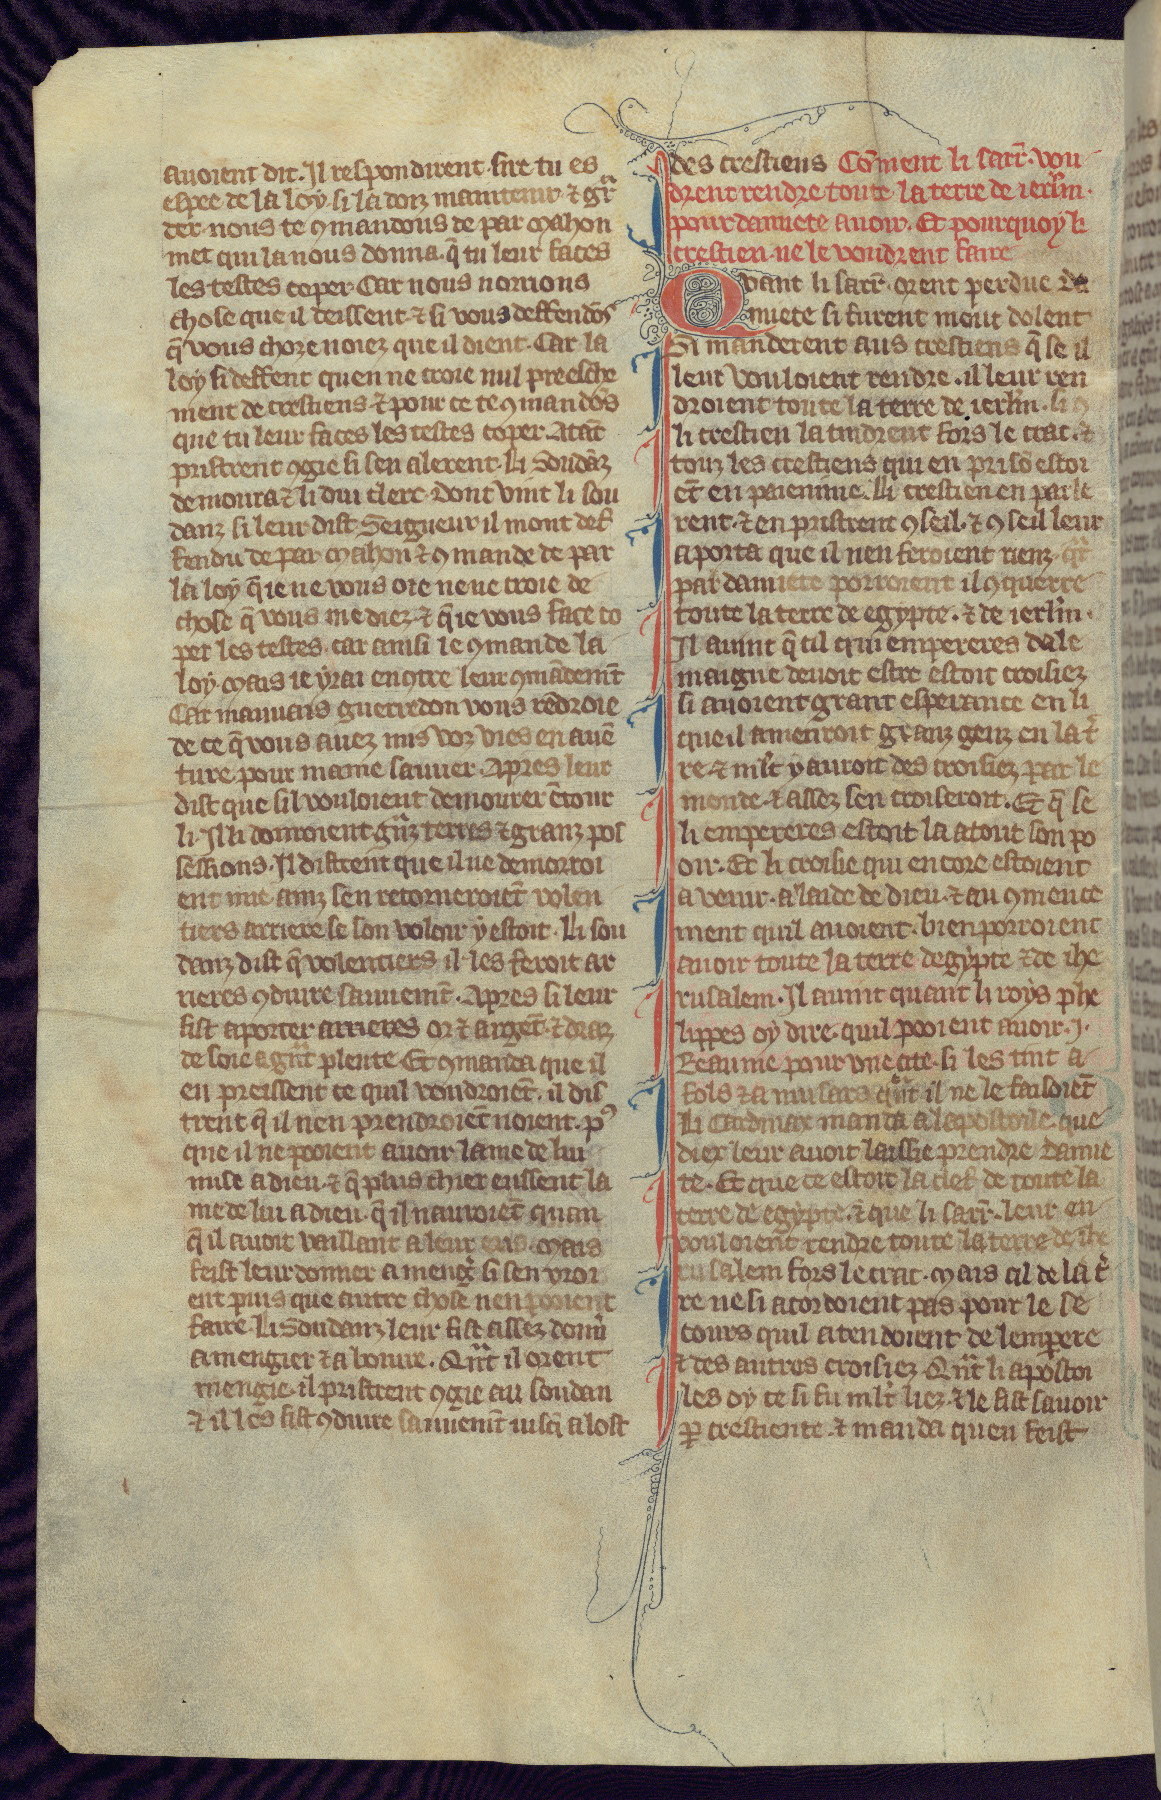 auoient dit. Il respondirent. sire tu es
espee de la loy. si la doiz maintenir. ⁊ gar
der. nous te ꝯmandons de par mahon
met qui la nous donna. q̃ tu leur faces
les testes coper. Car nous norrions
chose que il deissent. ⁊ si vous deffendõs
q̃ vous choze n'oiez que il dient. Car la
loy si deffent quen ne croie nul preesche
ment de crestiens ⁊ pour ce te ꝯmandõs
que tu leur faces les testes coper. Atãt
pristrent ꝯgie si sen alerent. Li Soudãz
demoura ⁊ li dui clerc. Dont vint li sou
danz si leur dist Seigneur il mont def
fendu de par mahon ⁊ ꝯmande de par
la loy q̃ ie ne vous oie ne ne croie de
chose q̃ vous me diez. ⁊ q̃ ie vous face co
per les testes. car ainsi le ꝯmande la
loy. mais ie yrai encꝯtre leur ꝯmãdemẽt
Car mauuais guerredon vous rẽdroie
de ce q̃ vous auez mis voz vies en auẽ
ture pour mame sauuer. Apres leur
dist que sil vouloient demourer ẽtour
li. Il li donroient grãz terres ⁊ granz pos
sessions. Il distrent que il ne demorroi
ent mie ainz sen retorneroiẽt volen
tiers arriere se son voloir y estoit. Li sou
danz dist q̃ volentiers il les feroit ar
rieres ꝯduire sauuemẽt. Apres si leur
fist aporter arrieres or ⁊ argẽt. ⁊ draz
de soie a grãt plente. Et ꝯmanda que il
en preissent ce quil voudroiẽt. il dis
trent q̃ il nen prendroiẽt noient. p9
que il ne pooient auoir lame de lui
mise a dieu. ⁊ q̃ plus chier eussent la
me de lui a dieu. q̃ il nauroiẽt quan
q̃ il auoit vaillant a leur eus. mais
feist leur donner a mengr̃ si sen yror
ent puis que autre chose nen pooient
faire. Li Soudanz leur fist assez donñ
a mengier ⁊ a boiure. Qñt il orent
mengie. il pristrent ꝯgie au soudan
⁊ il les fist ꝯduire sauuemẽt iusq̃ a lost
des crestiens Cõment li sarr̃. vou
drent rendre toute la terre de ierl̃m.
pour damiete auoir. Et pourquoy li
crestien ne le voudrent faire
Qvant li sarr̃. orent perdue da
miete si furent mout dolent
Si manderent aus crestiens q̃ se il
leur vouloient rendre. il leur ren
droient toute la terre de ierl̃m. si ꝯ
li crestien la tindrent fors le crac. ⁊
touz les crestiens qui en prisõ estoi
ẽt en paienime. Li crestien en parle
rent. ⁊ en pristrent ꝯseil. ⁊ ꝯseil leur
aporta que il nen feroient rienz. qr̃
par damiete porroient il ꝯquerre
toute la terre de egypte. ⁊ de ierl̃m.
Il auint q̃ cil qui empereres dale
maigne deuoit estre estoit croisiez
si auoient grant esperance en li
que il amenroit granz genz en la t̾
re. ⁊ ml̃t y auroit des croisiez par le
monde. ⁊ assez sen croiseroit. Et q̃ se
li empereres estoit la atout son po
oir. Et li croisie qui encore estoient
a venir. a laide de dieu. ⁊ au ꝯmence
ment quil auoient. bien porroient
auoir toute la terre degypte ⁊ de ihe
rusalem. Il auint quant li roys phe
lippes oy dire. quil pooient auoir .j.
Reaume pour vne cite. si les tint a
fols ⁊ a musars qñt il ne le faisoiẽt
Li Cardinax manda a lapostoile que
diex leur auoit laissie prendre Damie
te. Et que ce estoit la clef de toute la
terre de egypte. ⁊ que li sarr̃. leur en
vouloient rendre toute la terre de ihe
rusalem fors le crac. mais cil de la t̾
re ne si acordoient pas pour le se
cours quil atendoient de lempere
⁊ des autres croisiez. Qñt li apostoi
les oy ce si fu ml̃t liez. ⁊ le fist sauoir
ꝑ crestiente. ⁊ manda quen feist